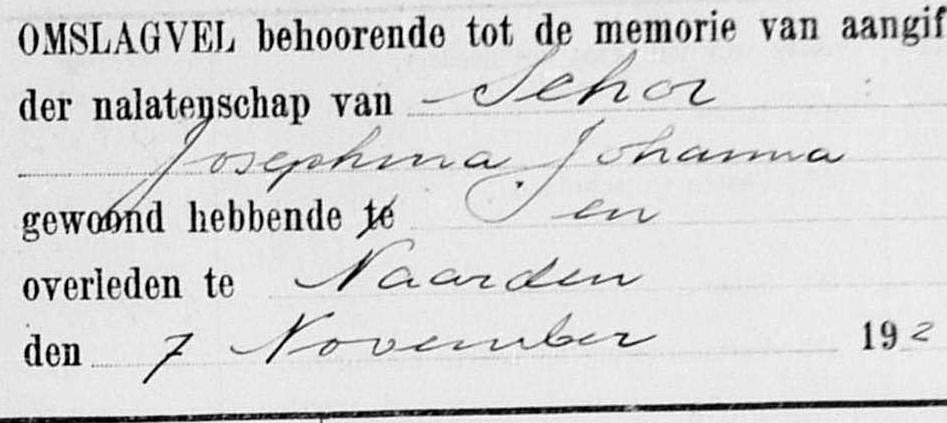 OMSLAGVEL behoorende tot de memorie van aangif
der nalatenschap van Schor
Josephina Johanna
gewoond hebbende te en
overleden te Naarden
den 7 November 192